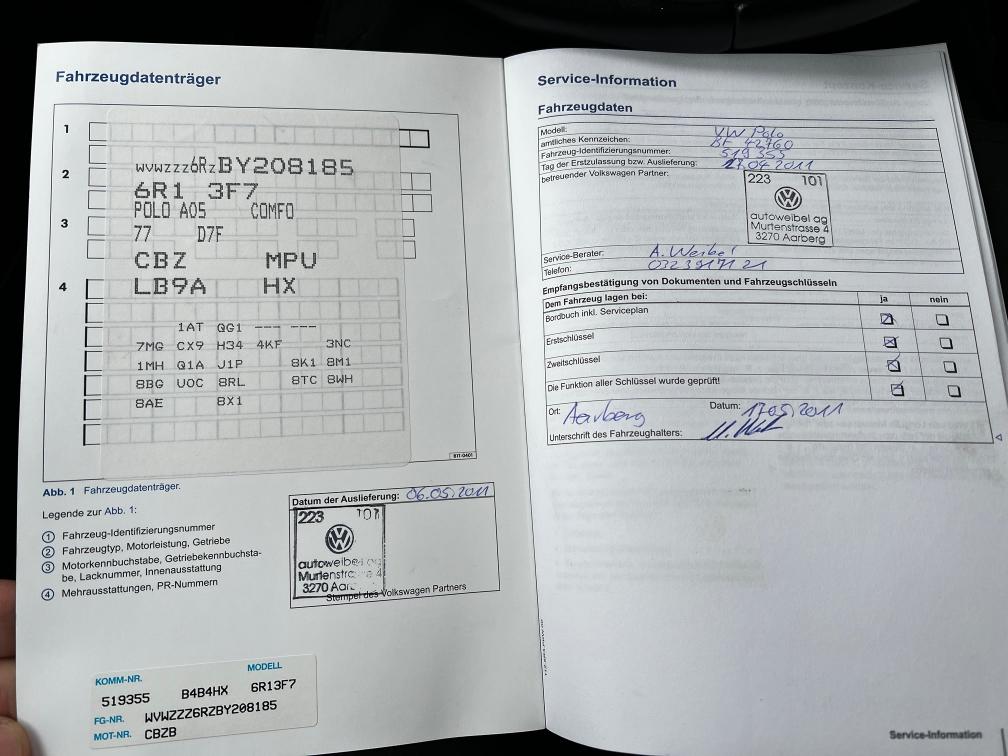 Fahrzeugdatenträger
1
2
3
4
WVWZZZ6RZBY208185
6R1 3F7
POLO A05 COMFO
77 D7F
CBZ MPU
LB9A HX
1AT QG1 --- ---
7MG CX9 H34 4KF 3NC
1MH Q1A J1P 8K1 8M1
8BG UOC 8RL 8TC 8WH
8AE 8X1
B1T-0401
Abb. 1 Fahrzeugdatenträger.
Legende zur Abb. 1:
1 Fahrzeug-Identifizierungsnummer
2 Fahrzeugtyp, Motorleistung, Getriebe
3 Motorkennbuchstabe, Getriebekennbuchsta-
be, Lacknummer, Innenausstattung
4 Mehrausstattungen, PR-Nummern
Datum der Auslieferung: 06.05.2011
223 101
autoweibel ag
Murtenstrasse 4
3270 Aarberg
Stempel des Volkswagen Partners
KOMM-NR. MODELL
519355 B4B4HX 6R13F7
FG-NR. WVWZZZ6RZBY208185
MOT-NR. CBZB
Service-Information
Fahrzeugdaten
Modell: VW Polo
amtliches Kennzeichen: BE 42760
Fahrzeug-Identifizierungsnummer: 519355
Tag der Erstzulassung bzw. Auslieferung: 27.04.2011
betreuender Volkswagen Partner:
223 101
autoweibel ag
Murtenstrasse 4
3270 Aarberg
Service-Berater: A. Weibel
Telefon: 032 391 71 21
Empfangsbestätigung von Dokumenten und Fahrzeugschlüsseln
Dem Fahrzeug lagen bei: ja nein
Bordbuch inkl. Serviceplan
Erstschlüssel
Zweitschlüssel
Die Funktion aller Schlüssel wurde geprüft!
Ort: Aarberg Datum: 17.05.2011
Unterschrift des Fahrzeughalters:
Service-Information